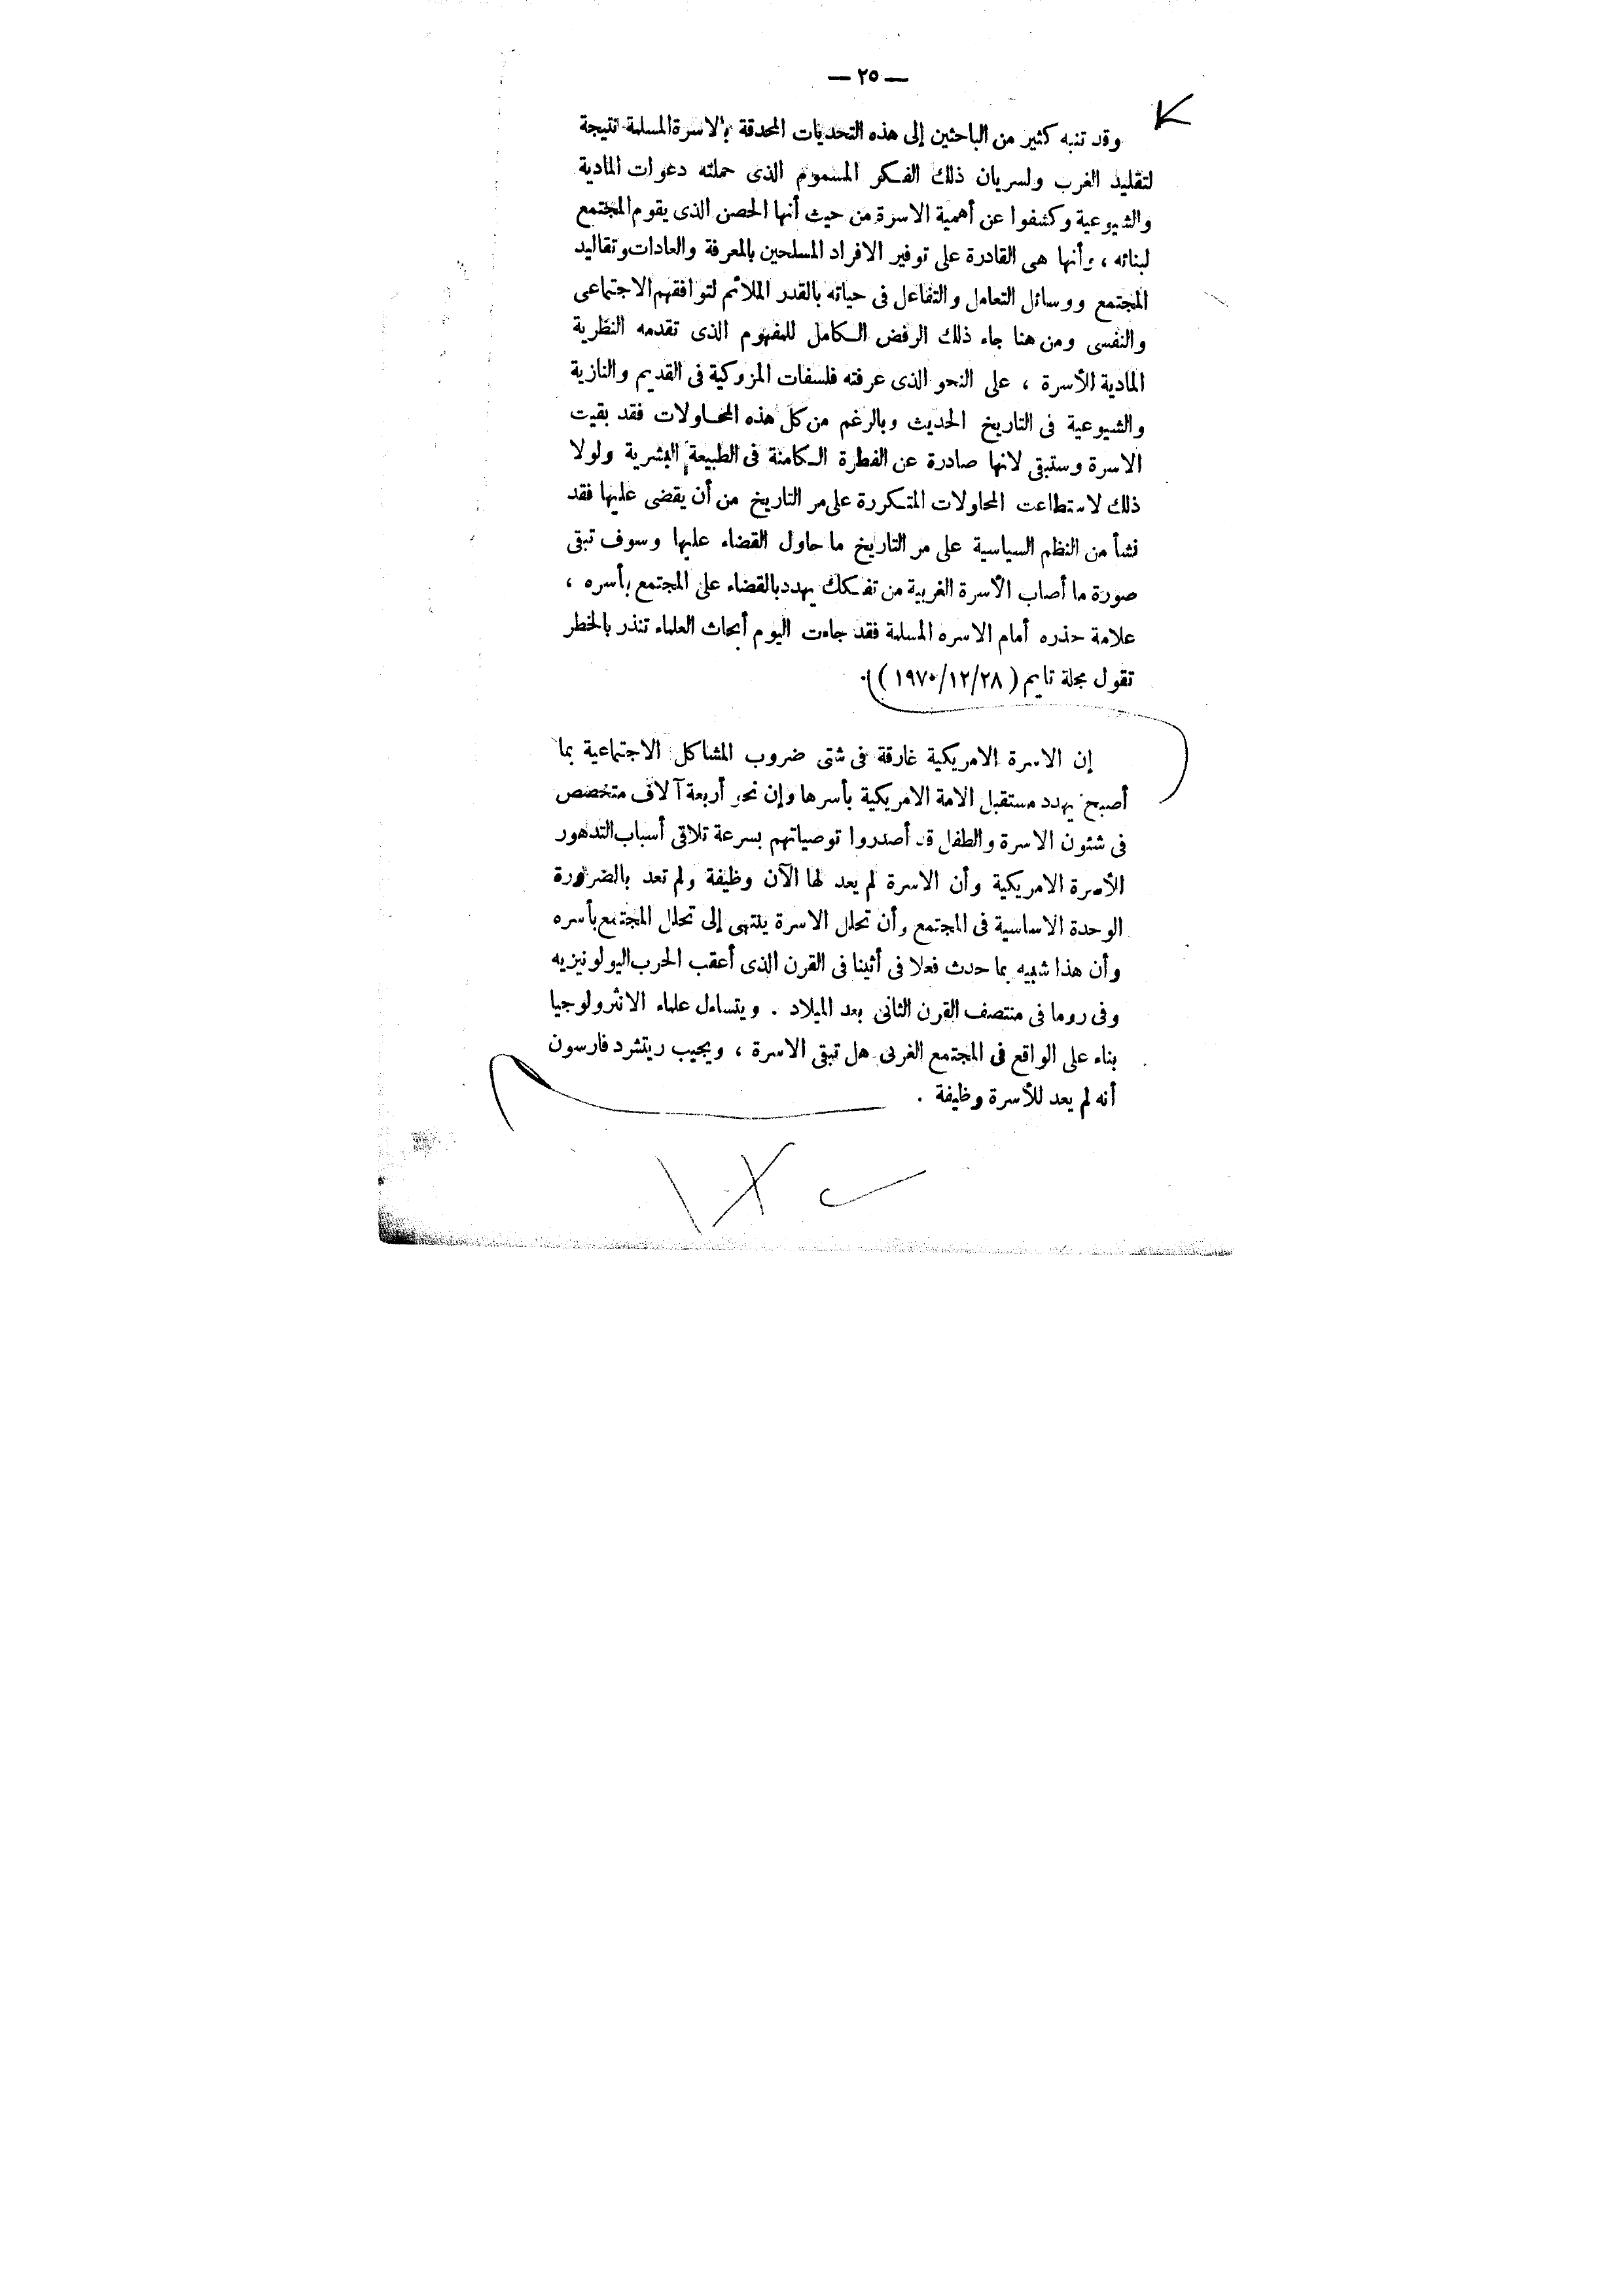 — ٢٥ —
وقد تنبه كثير من الباحثين إلى هذه التحديات المحدقة بالاسرة المسلمة نتيجة
لتقليد الغرب ولسريان ذلك الفكر المسموم الذى حملته دعوات المادية
والشيوعية وكشفوا عن أهمية الاسرة من حيث أنها الحصن الذى يقوم المجتمع
لبنائه ، وأنها هى القادرة على توفير الافراد المسلحين بالمعرفة والعادات وتقاليد
المجتمع ووسائل التعامل والتفاعل فى حياته بالقدر الملائم لتوافقهم الاجتماعى
والنفسى ومن هنا جاء ذلك الرفض الكامل للمفهوم الذى تقدمه النظرية
المادية للأسرة ، على النحو الذى عرفته فلسفات المزوكية فى القديم والنازية
والشيوعية فى التاريخ الحديث وبالرغم من كل هذه المحاولات فقد بقيت
الاسرة وستبقى لانها صادرة عن الفطرة الكامنة فى الطبيعة البشرية ولولا
ذلك لاستطاعت المحاولات المتكررة على مر التاريخ من أن يقضى عليها فقد
نشأ من النظم السياسية على مر التاريخ ما حاول القضاء عليها وسوف تبقى
صورة ما أصاب الأسرة الغربية من تفكك يهدد بالقضاء على المجتمع بأسره ،
علامة حذره أمام الاسره المسلمة فقد جاءت اليوم أبحاث العلماء تنذر بالخطر
تقول مجلة تايم ( ١٩٧٠/١٢/٢٨ ) .
إن الاسرة الامريكية غارقة فى شتى ضروب المشاكل الاجتماعية بما
أصبح يهدد مستقبل الامة الامريكية بأسرها وإن نحو أربعة آلاف متخصص
فى شئون الاسرة والطفل قد أصدروا توصياتهم بسرعة تلاقى أسباب التدهور
الأسرة الامريكية وأن الاسرة لم يعد لها الآن وظيفة ولم تعد بالضرورة
الوحدة الاساسية فى المجتمع وأن تحلل الاسرة ينتهى إلى تحلل المجتمع بأسره
وأن هذا شبيه بما حدث فعلا فى أثينا فى القرن الذى أعقب الحرب اليولونيزيه
وفى روما فى منتصف القرن الثانى بعد الميلاد . ويتساءل علماء الانثرولوجيا
بناء على الواقع فى المجتمع الغربى هل تبقى الاسرة ، ويجيب ريتشرد فارسون
أنه لم يعد للأسرة وظيفة .